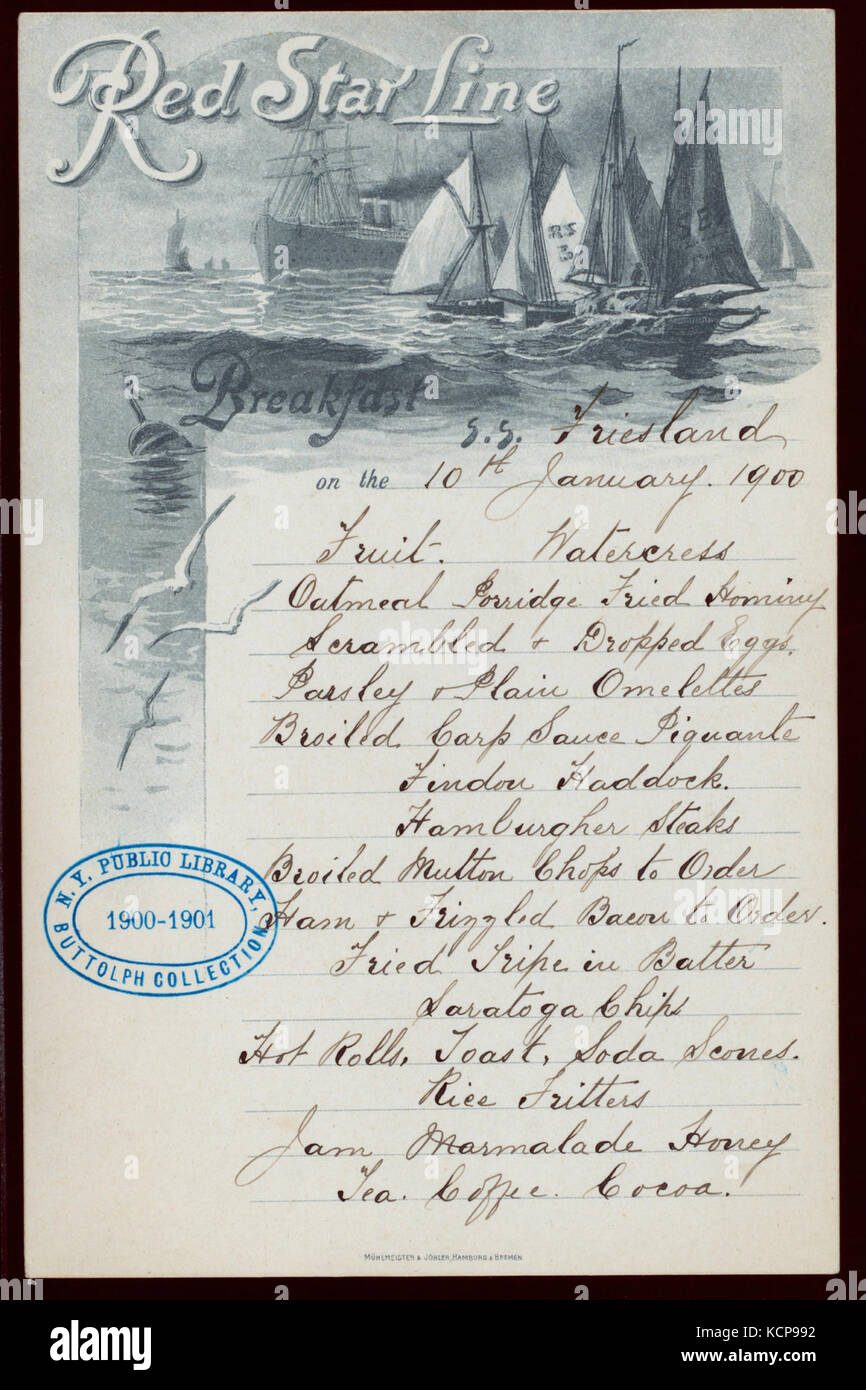 Red Star Line
RS
Breakfast
S.S. Friesland
on the 10th January. 1900
Fruit. Watercress
Oatmeal Porridge Fried Hominy
Scrambled & Dropped Eggs.
Parsley & Plain Omelettes
Broiled Carp Sauce Piquante
Findon Haddock.
Hamburgher Steaks
Broiled Mutton Chops to Order
Ham & Frizzled Bacon to Order.
Fried Tripe in Batter
Saratoga Chips
Hot Rolls, Toast, Soda Scones.
Rice Fritters
Jam Marmalade Honey
Tea. Coffee. Cocoa.
N. Y. PUBLIC LIBRARY,
1900-1901
BUTTOLPH COLLECTION
MÜHLMEISTER & JOHLER, HAMBURG & BREMEN
alamy
a alamy stock photo
Image ID: KCP992
www.alamy.com